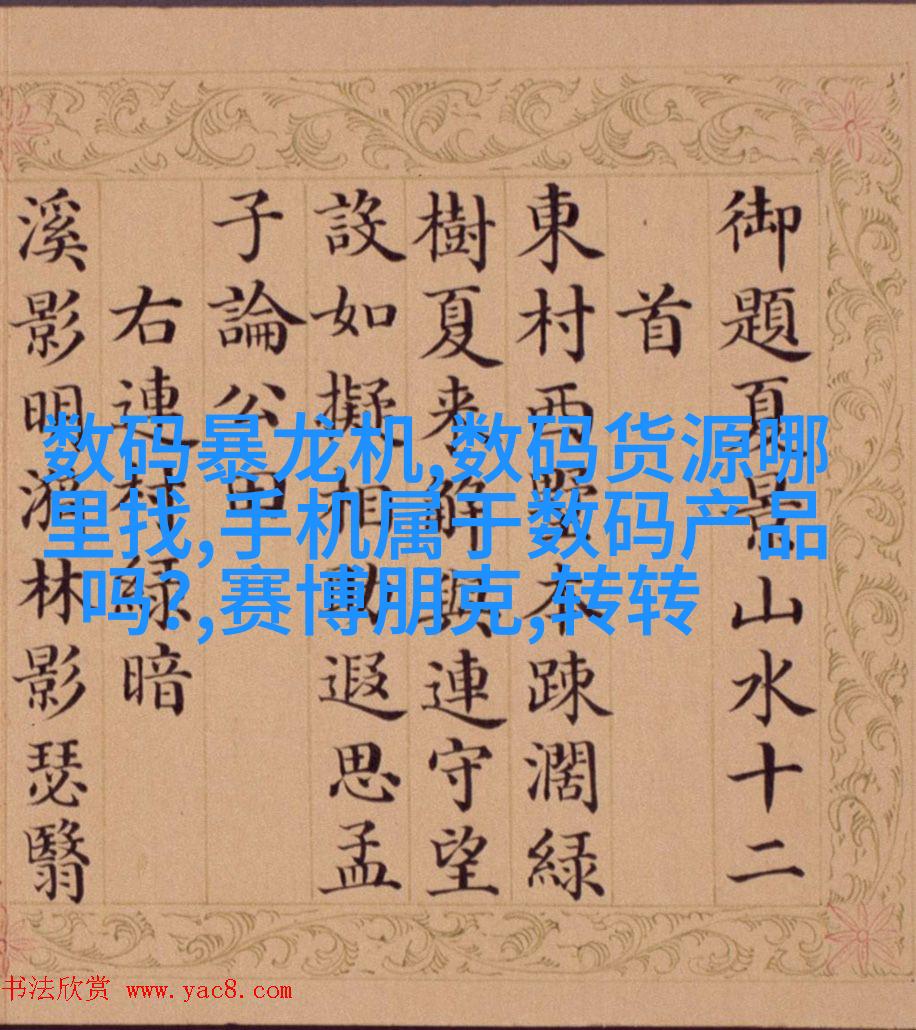 御題夏景山水十二
首
東村西墅本疎濶緑
樹夏来解與連守望
設如擬相助遐思孟
子論公田
右連村緑暗
溪影明林影瑟翳
数码暴龙机,数码货源哪
里找,手机属于数码产品
吗?,赛博朋克,转转
书法欣赏 www.yac8.com